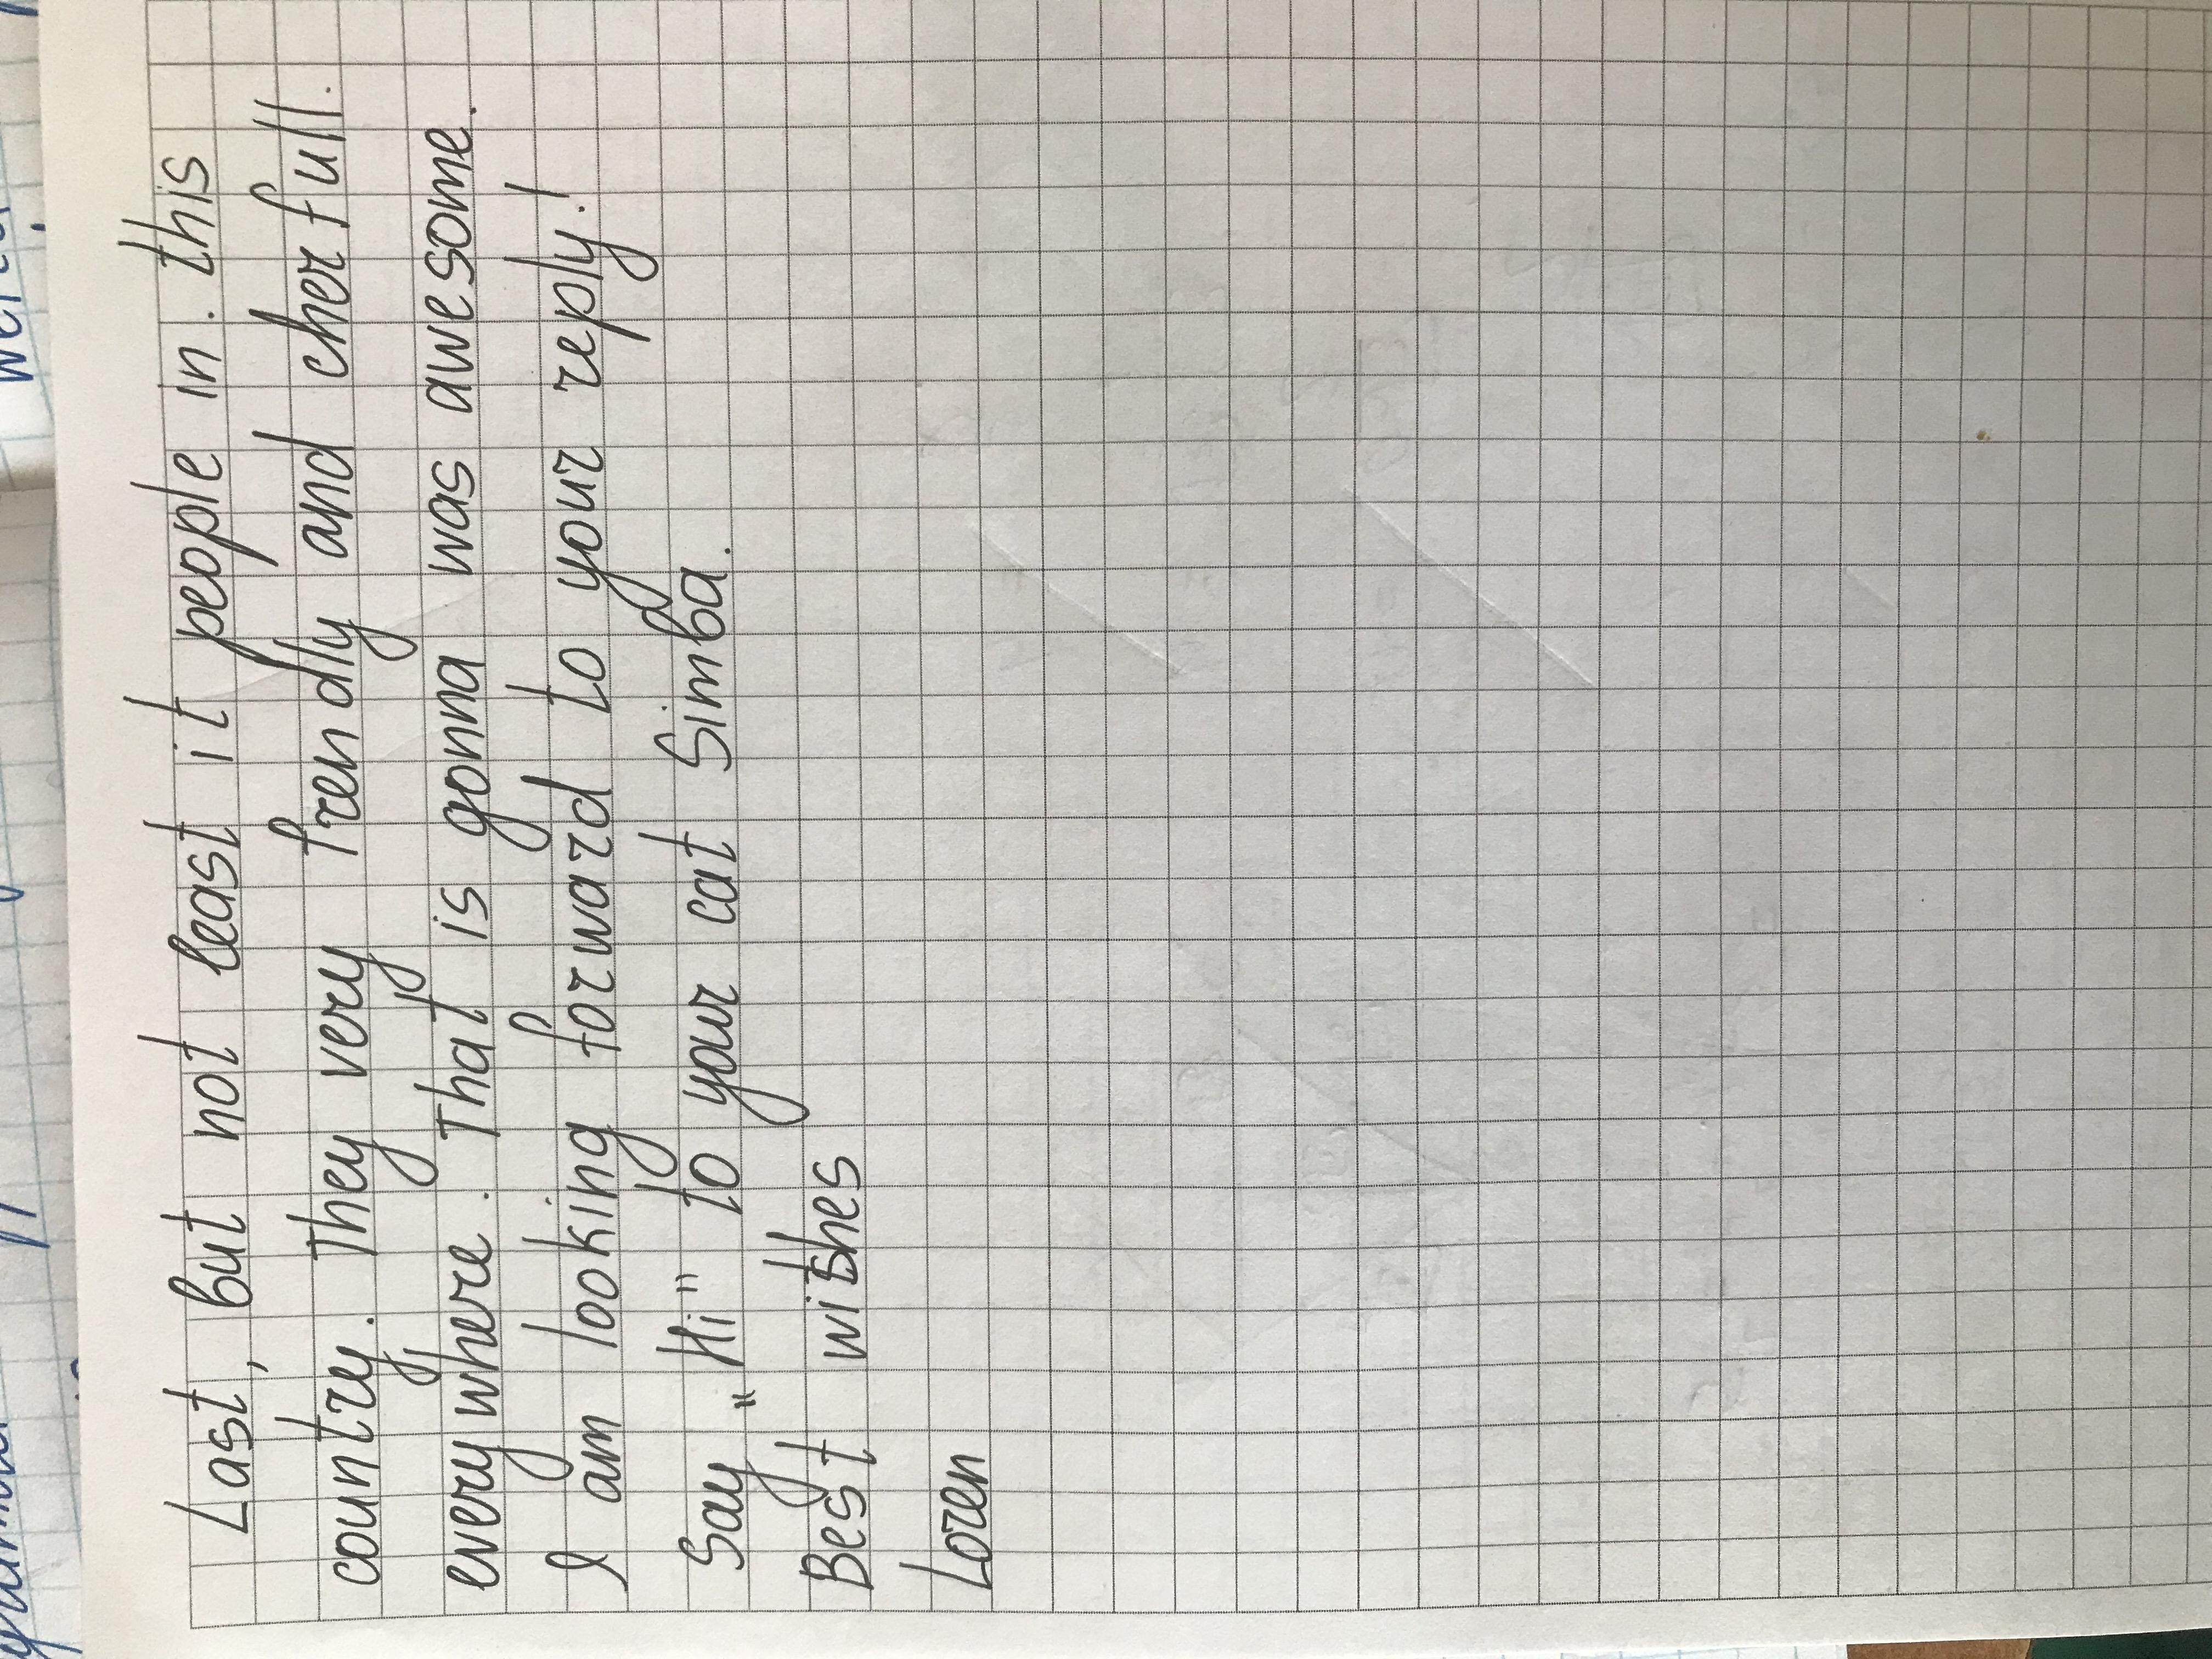 Last, but not least it people in. this
country. They very frendly and cherfull.
everywhere. That is gonna was awesome.
I am looking forward to your reply!
Say „Hi" to your cat Simba.
Best wishes
Loren